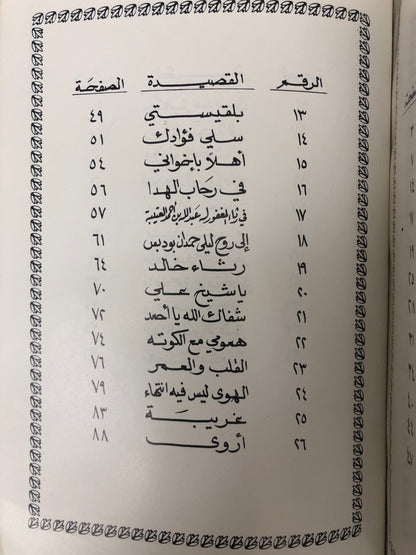 الرقم القصيدة الصفحة
١٣ بلقيستي ٤٩
١٤ سلي فؤادك ٥١
١٥ أهلاً بإخواني ٥٤
١٦ في رحاب الهدا ٥٦
١٧ في رثاء المغفور له عبدالله بن أحمد ٥٧
١٨ إلى روح ليلى حمدان بودبس ٦١
١٩ رثاء خالد ٦٤
٢٠ ياشيخ علي ٧٠
٢١ شفاك الله يا أحمد ٧٢
٢٢ همومي مع الكوته ٧٤
٢٣ القلب والعمر ٧٦
٢٤ الهوى ليس فيه انتهاء ٧٩
٢٥ غريبة ٨٣
٢٦ أروى ٨٨